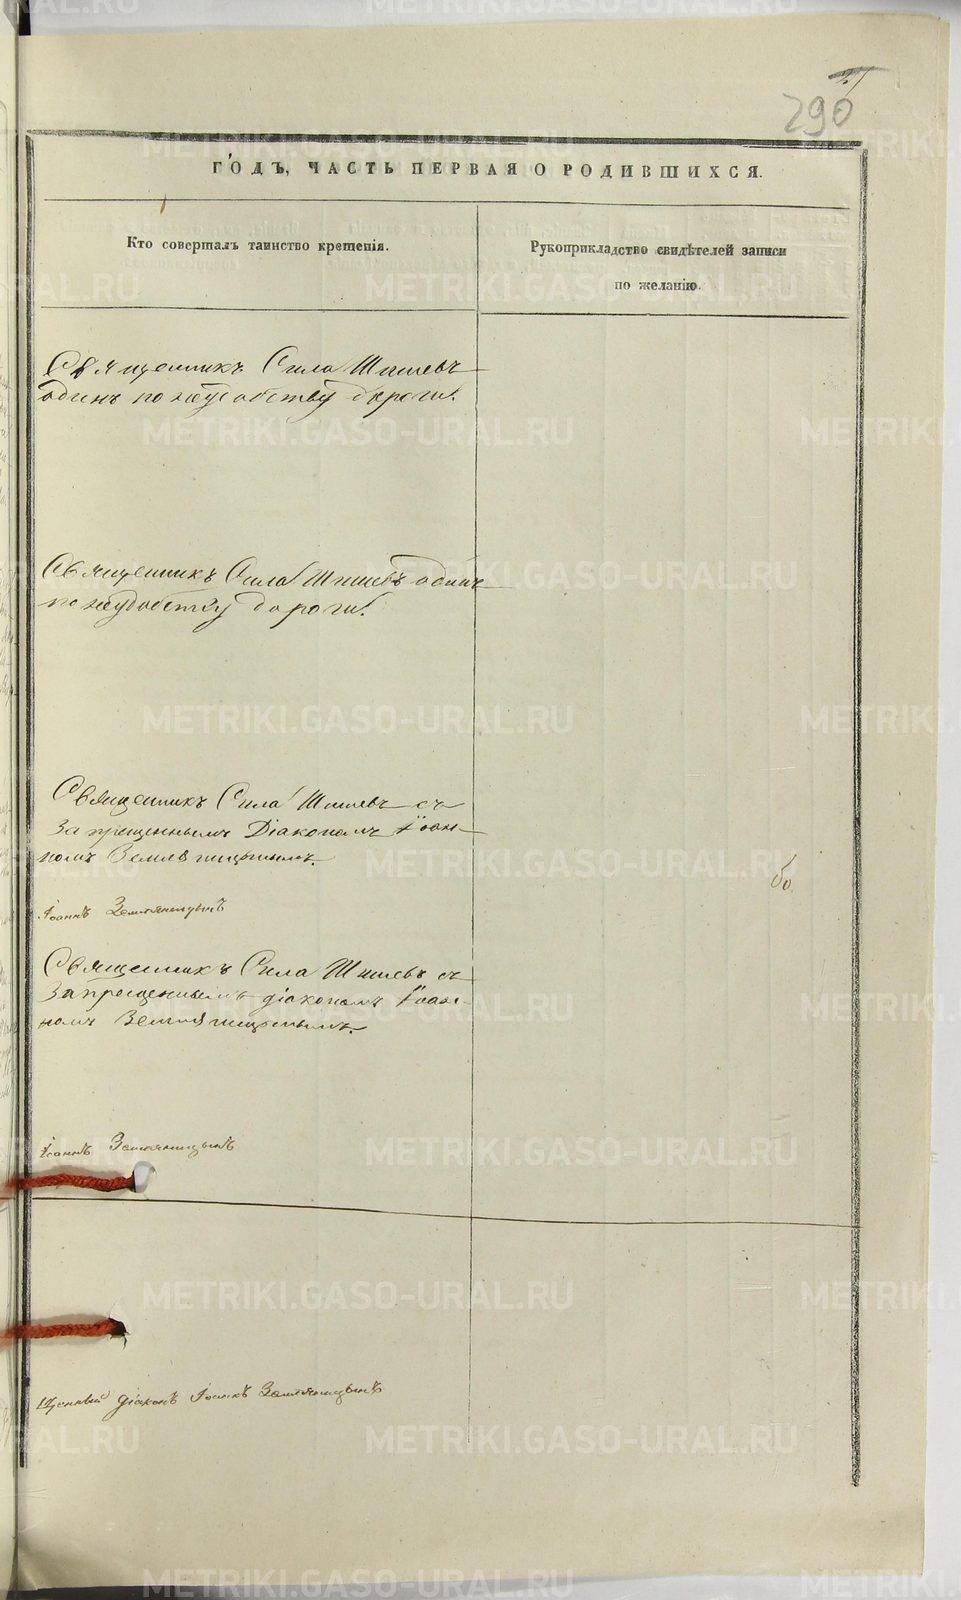 290
ГОДЪ, ЧАСТЬ ПЕРВАЯ О РОДИВШИХСЯ.
Кто совершалъ таинство крещенія.
Рукоприкладство свидѣтелей записи
по желанію.
Священникъ Сила Шишевъ
одинъ по неудобству дороги.
Священникъ Сила Шишевъ одинъ
по неудобству дороги.
Священникъ Сила Шишевъ съ
запрещеннымъ Діакономъ Іоан-
номъ
Іоаннъ Земляницынъ
Священникъ Сила Шишевъ съ
запрещеннымъ діакономъ Іоан-
номъ Земляницынымъ.
Іоаннъ Земляницынъ
щенный діаконъ Іоаннъ Земляницынъ
METRIKI.GASO-URAL.RU